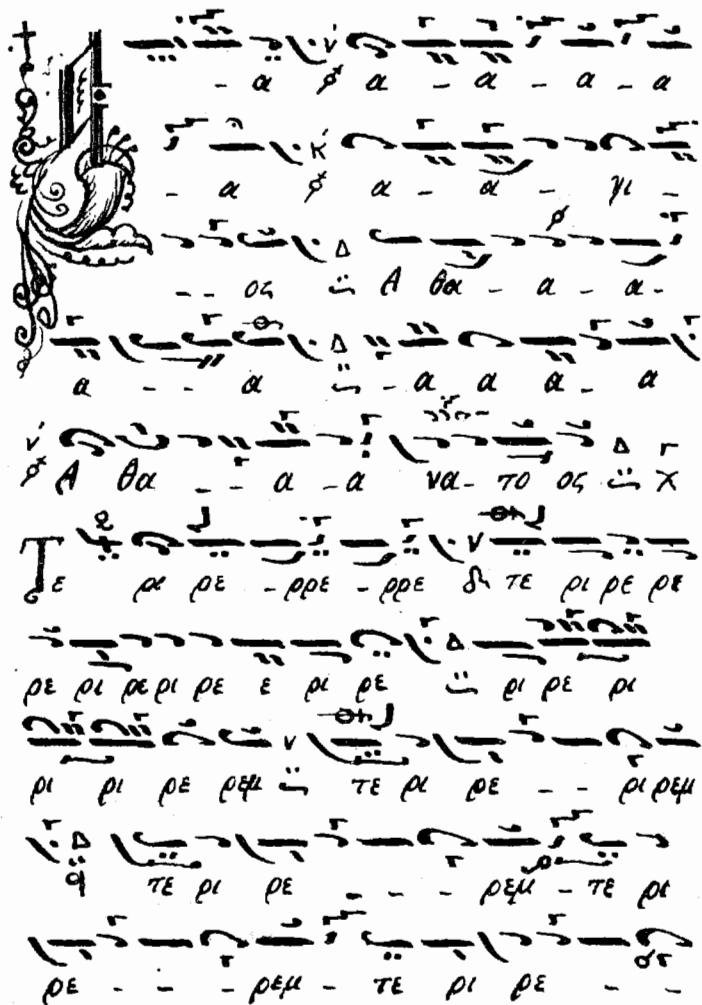 - α α - α - α - α
- α α - α - γι -
- - ος Δ Α θα - α - α -
α - - α Δ - α α α - α
Α θα - - α - α να - το ος Δ Γ χ
Τε ρι ρε - ρρε - ρρε τε ρι ρε ρε
ρε ρι ρε ρι ρε ε ρι ρε Δ ρι ρε ρι
ρι ρι ρε ρεμ τε ρι ρε - - ρι ρεμ
Δ τε ρι ρε - - - ρεμ - τε ρι
ρε - - - ρεμ - τε ρι ρε - -